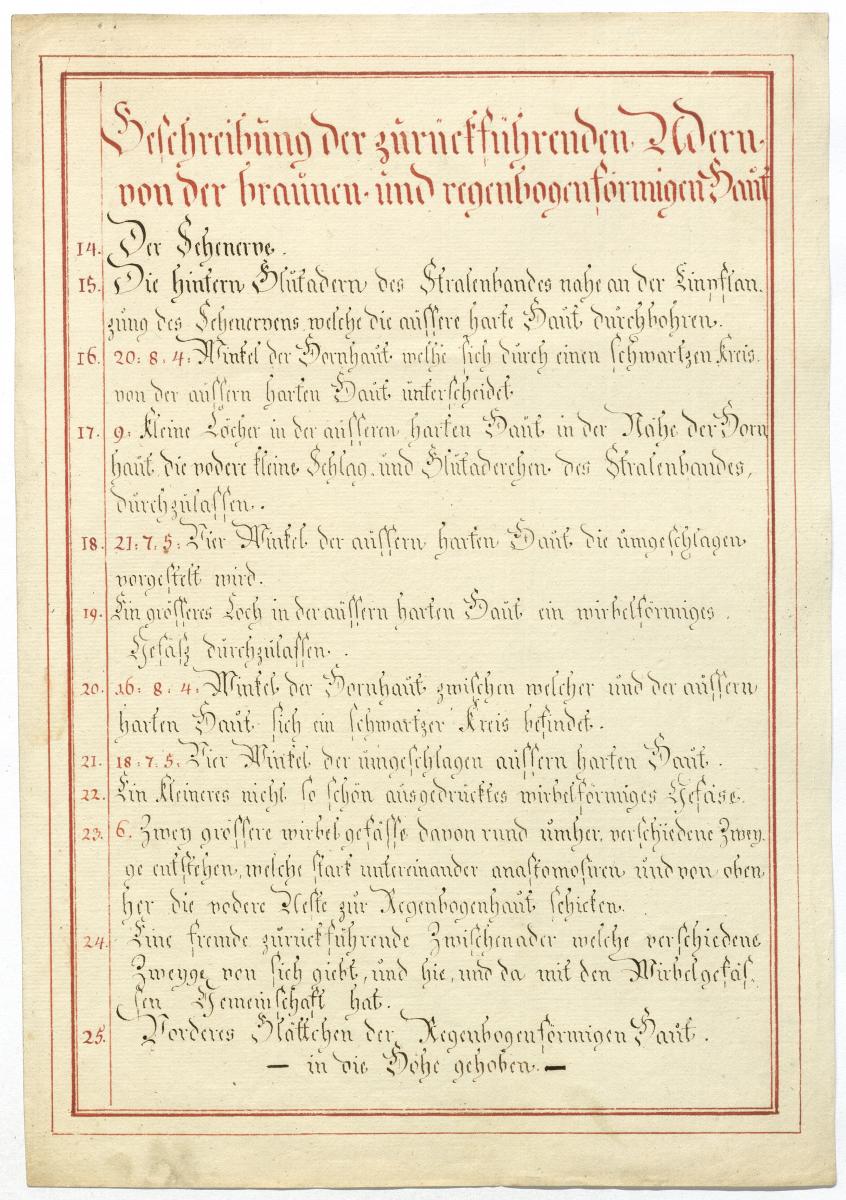 Beschreibung der zurückführenden Adern
von der braunen und regenbogenförmigen Haut
14. Der Sehenerve.
15. Die hintern Blutadern des Stralenbandes nahe an der Einpflan.
zung des Sehenervens welche die aüssere harte Haut durchbohren.
16. 20: 8. 4: Winkel der Hornhaut welhe sich durch einen schwartzen Kreis.
von der aüssern harten Haut unterscheidet
17. 9: Kleine Löcher in der aüsseren harten Haut in der Nähe der Horn
haut die vodere kleine Schlag. und Blutaderchen des Stralenbandes,
durchzulassen.
18. 21: 7. 5: Vier Winkel der aüssern harten Haut die umgeschlagen
vorgestelt wird.
19. Ein grösseres Loch in der aüssern harten Haut ein wirbelförmiges.
Gefäsz durchzulassen.
20. 16: 8: 4: Winkel der Hornhaut zwischen welcher und der aüssern
harten Haut sich ein schwartzer Kreis befindet.
21. 18: 7. 5: Vier Winkel der umgeschlagen aussern harten Haut.
22. Ein Kleineres nicht so schön ausgedrücktes wirbelförmiges Gefäse.
23. 6. Zwey grössere wirbelgefässe davon rund umher, verschiedene Zwey.
ge entstehen, welche stark untereinander anastomosiren und von oben
her die vodere Aeste zur Regenbogenhaut schicken.
24. Eine fremde zürückführende Zwischenader welche verschiedene
Zweyge von sich giebt, und hie, und da mit den Wirbelgefäs.
sen Gemeinschaft hat.
25. Vorderes Blättchen der Regenbogenförmigen Haut.
— in die Höhe gehoben. —